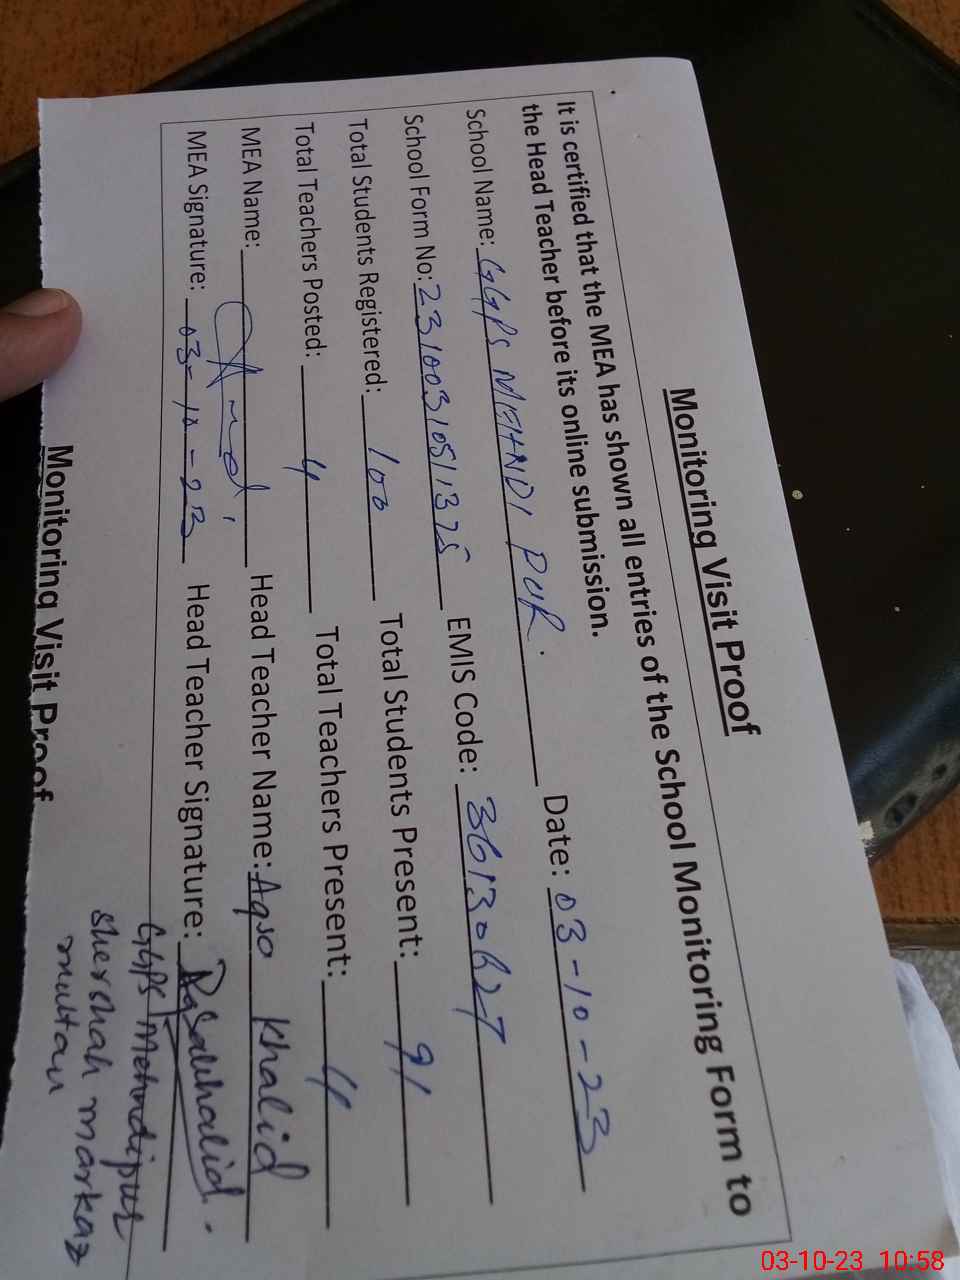 Monitoring Visit Proof
It is certified that the MEA has shown all entries of the School Monitoring Form to
the Head Teacher before its online submission.
School Name: GGPS MEHNDI PUR. Date: 03-10-23
School Form No: 2310031051375 EMIS Code: 36130627
Total Students Registered: 100 Total Students Present: 91
Total Teachers Posted: 4 Total Teachers Present: 4
MEA Name: Head Teacher Name: Aqsa Khalid
MEA Signature: 03-10-23 Head Teacher Signature:
GGPS Mehndipur
shershah markaz
multan
Monitoring Visit Proof
03-10-23 10:58